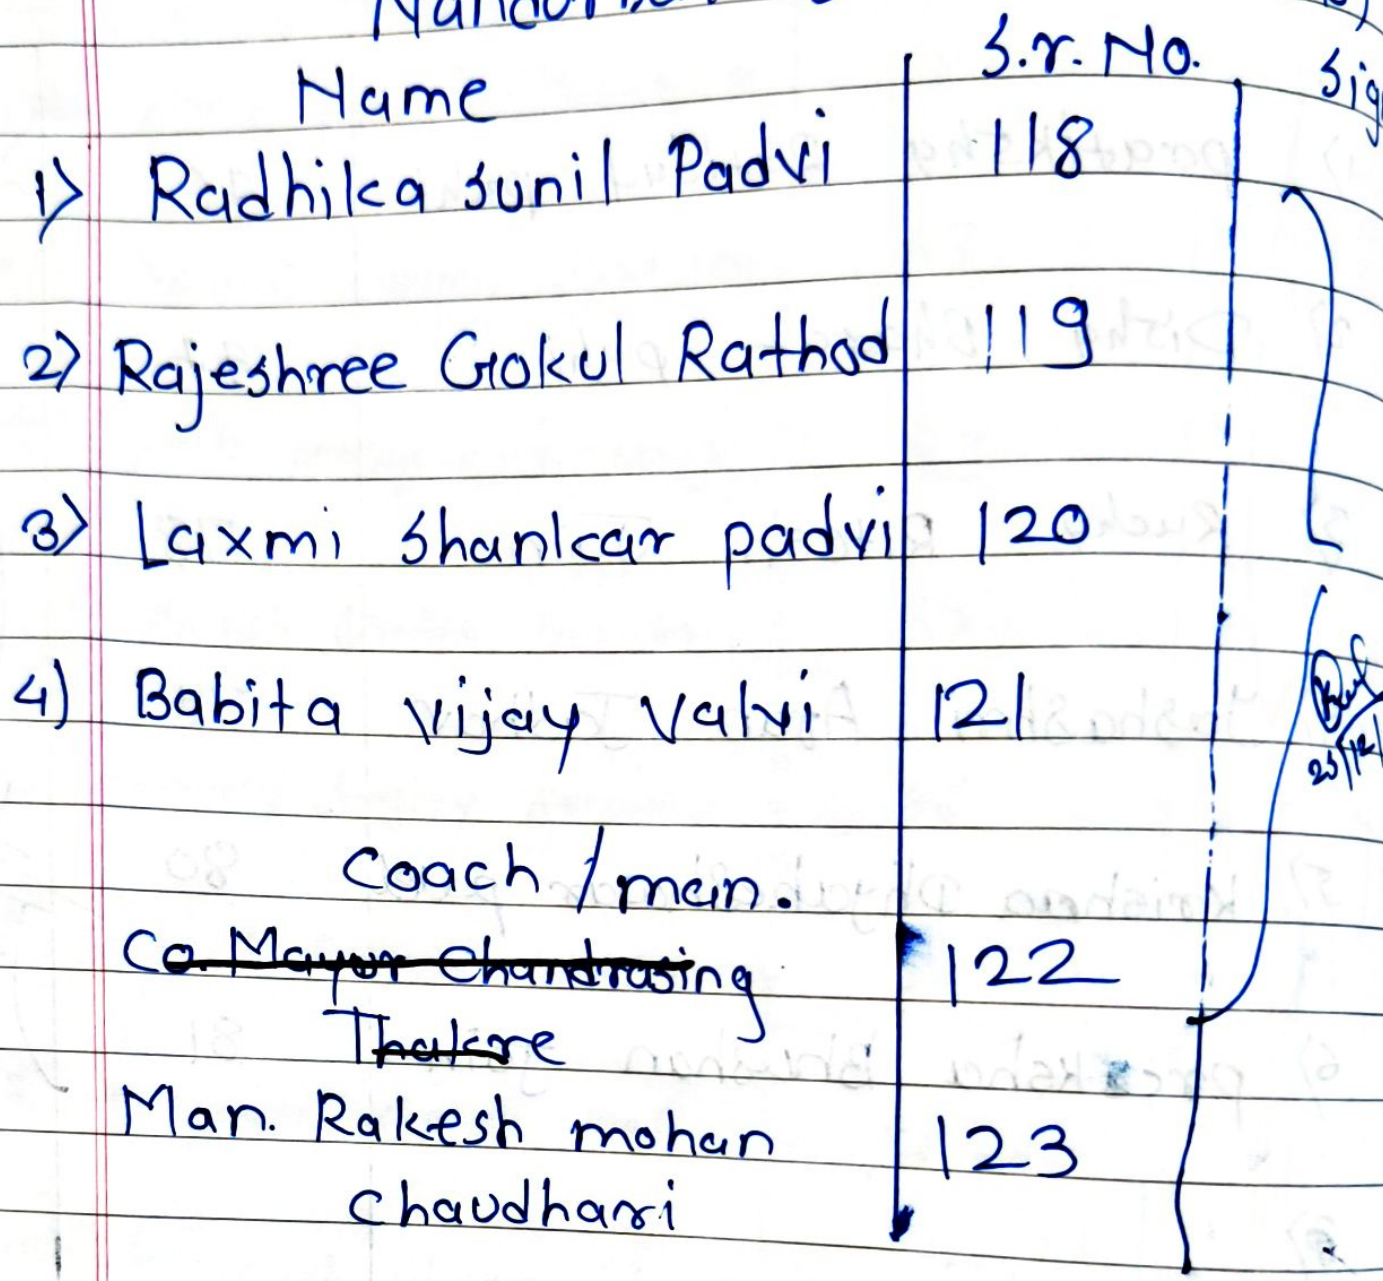 Name S.r. No.
1) Radhika Sunil Padvi 118
2) Rajeshree Gokul Rathod 119
3) Laxmi Shankar padvi 120
4) Babita vijay valvi 121
Coach / man.
Co. Mayur Chandrasing 122
Thakre
Man. Rakesh mohan 123
Chaudhari